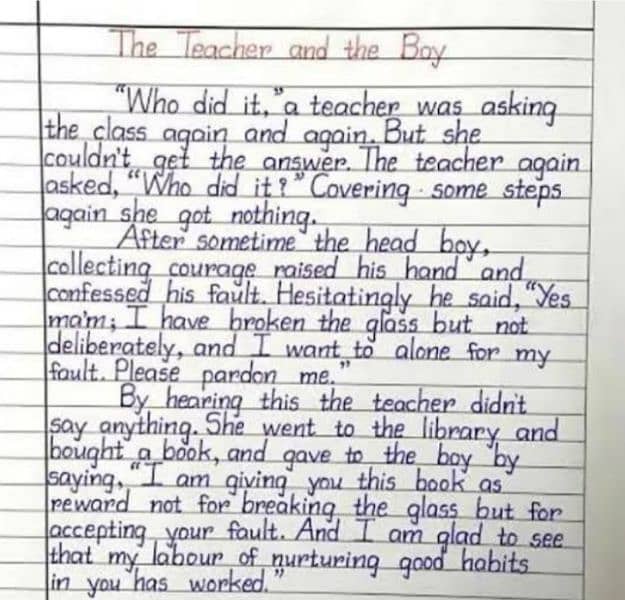 The Teacher and the Boy
"Who did it," a teacher was asking
the class again and again. But she
couldn't get the answer. The teacher again
asked, "Who did it?" Covering some steps
again she got nothing.
After sometime the head boy,
collecting courage raised his hand and
confessed his fault. Hesitatingly he said, "Yes
ma'm; I have broken the glass but not
deliberately, and I want to alone for my
fault. Please pardon me."
By hearing this the teacher didn't
say anything. She went to the library and
bought a book, and gave to the boy by
saying, "I am giving you this book as
reward not for breaking the glass but for
accepting your fault. And I am glad to see
that my labour of nurturing good habits
in you has worked."